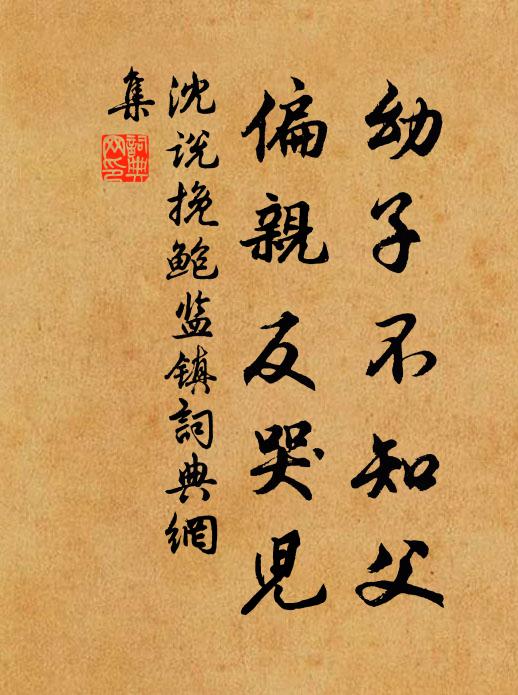 幼子不知父
偏親反哭児
沈说挽鲍监镇詞典網
集
詞典
网印